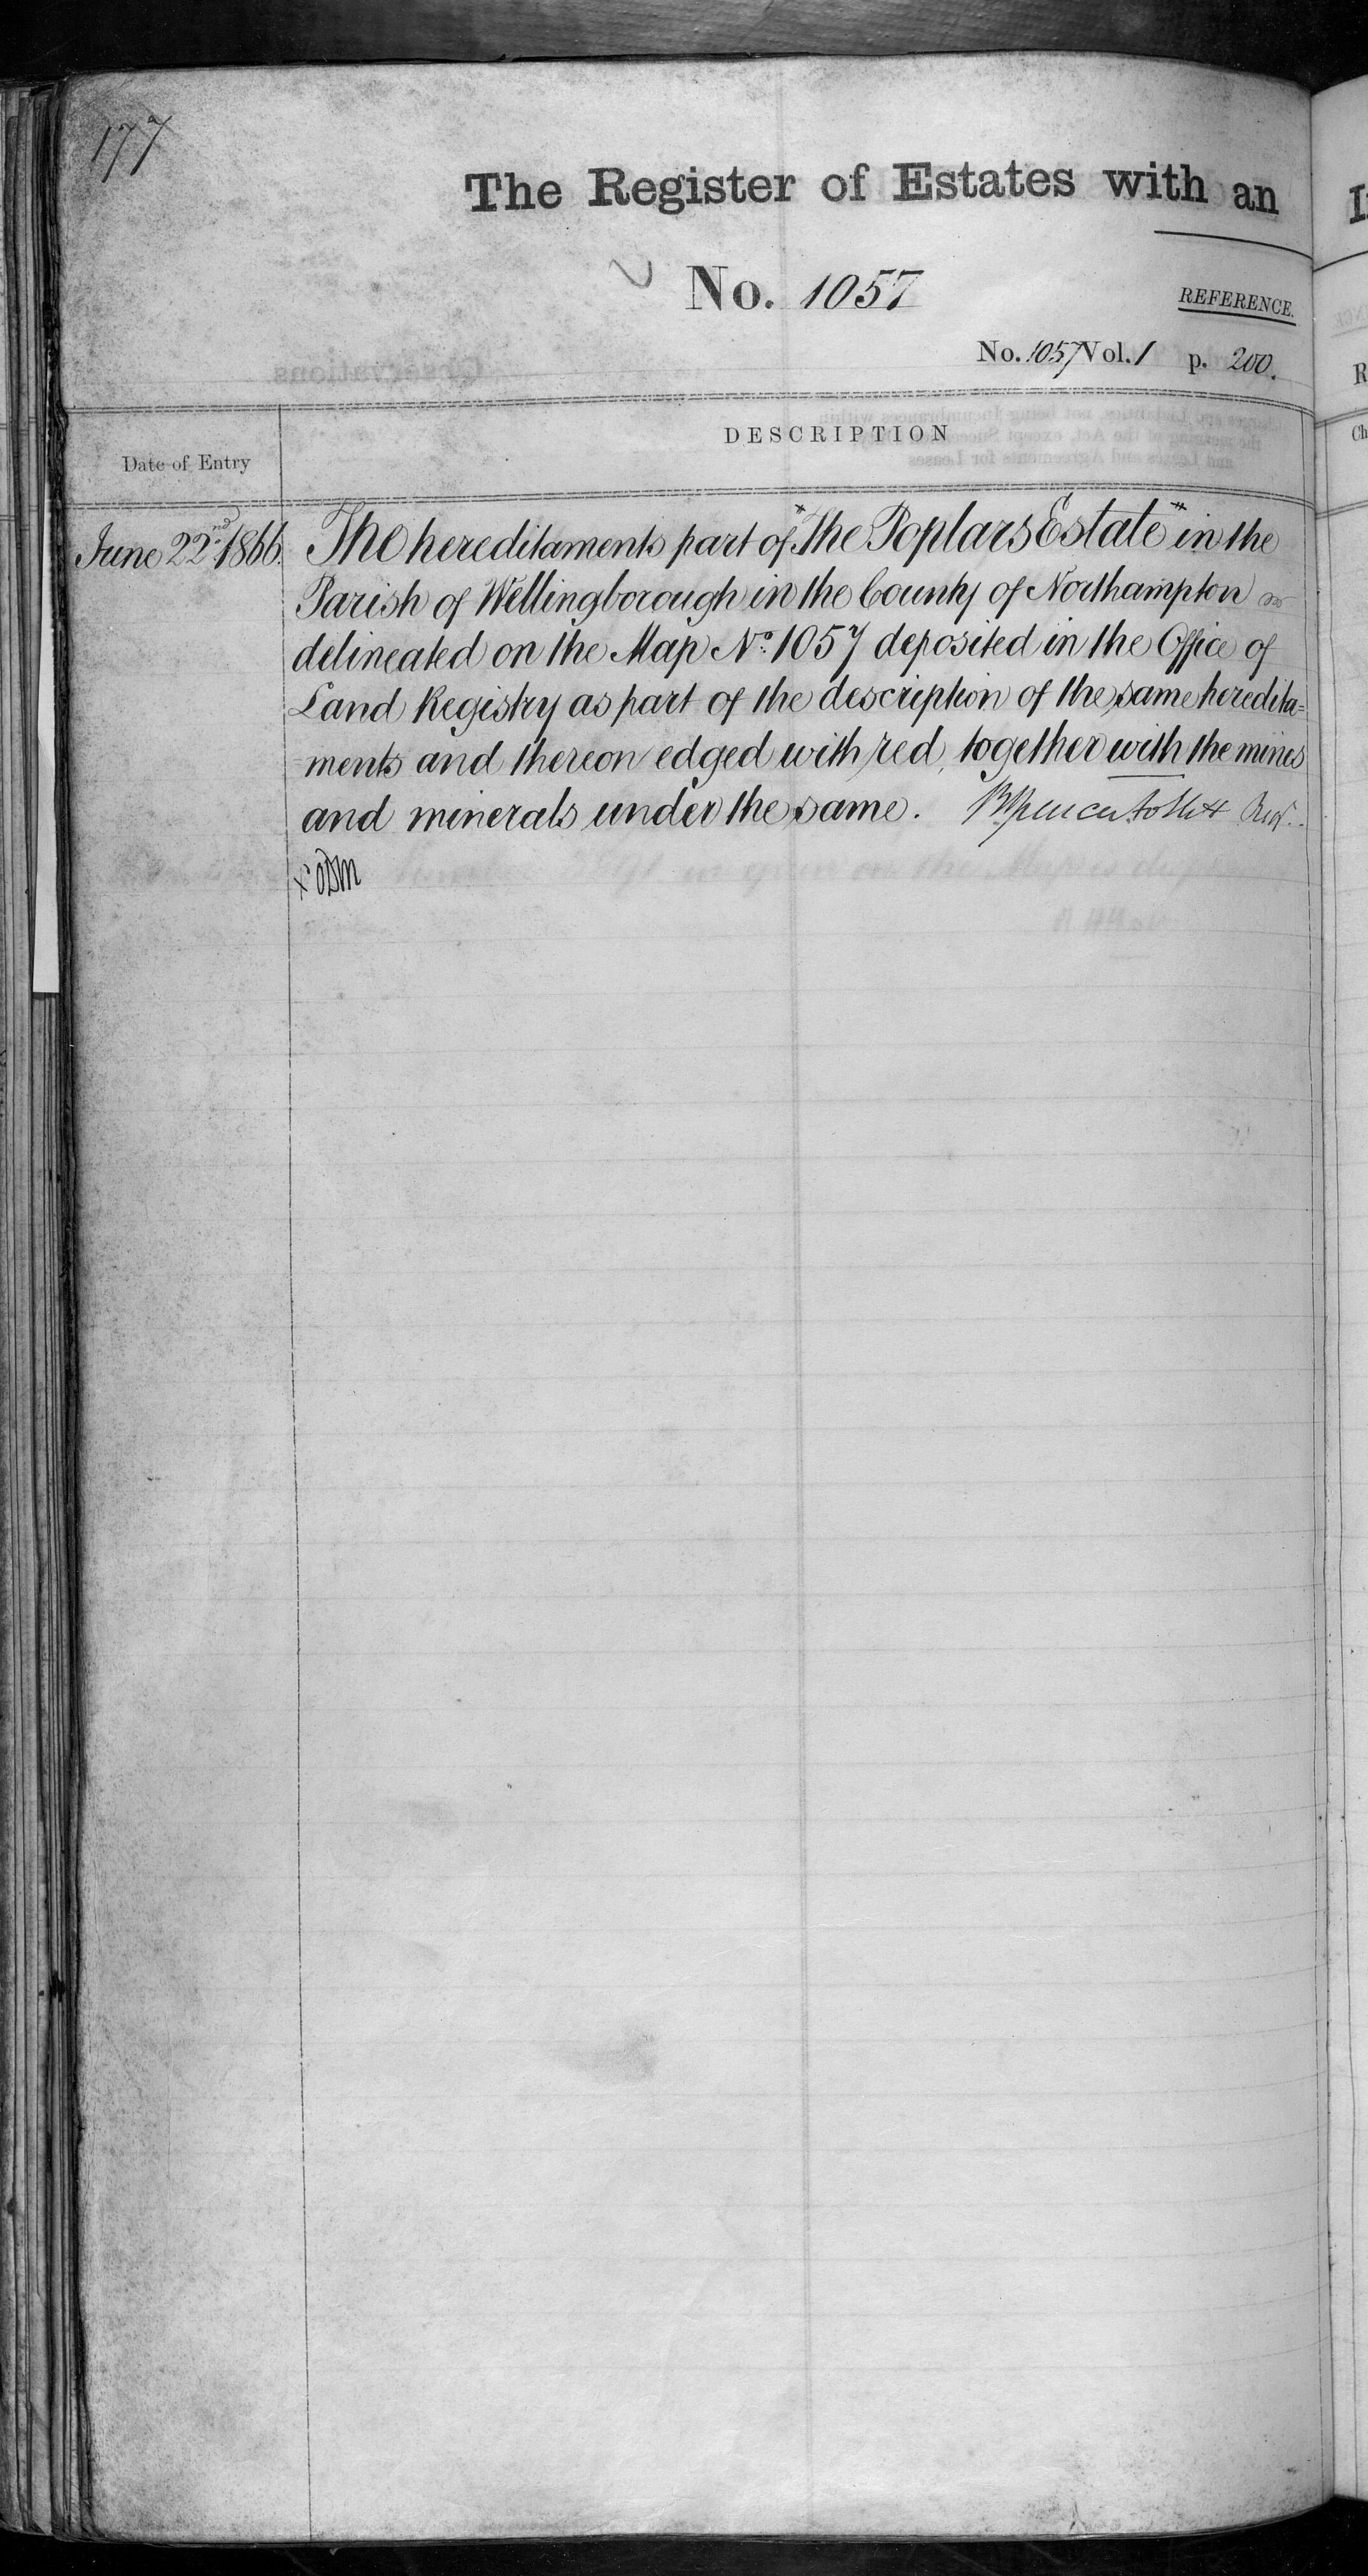 177
The Register of Estates with an
No. 1057
REFERENCE.
No. 1057 Vol. 1 p. 200.
DESCRIPTION
Date of Entry
June 22nd 1866. The hereditaments part of "The Poplars Estate" in the
Parish of Wellingborough in the County of Northampton
delineated on the Map No. 1057 deposited in the Office of
Land Registry as part of the description of the same heredita=
ments and thereon edged with red, together with the mines
and minerals under the same. Brent Spencer Follett Regr.